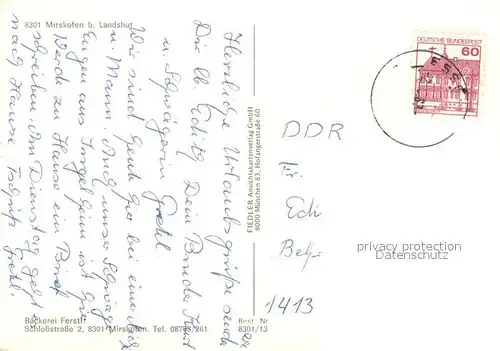 8301 Mirskofen b. Landshut
Herzliche Urlaubsgrüße sendet
Dir lb Edith, Dein Bruder Kurt
u. Schwägerin Gretl.
Wir sind heute hier bei eine
u. Mann. Auch unse
Eugen aus Ingelheim ist
Werde zu Hause ein Brief
schreiben. Am Dienstag geht's
nach Hause Tschüß Gretl.
Bäckerei Ferstl
Schloßstraße 2, 8301 Mirskofen. Tel. 08703/261
Best. Nr.
8301/13
FIEDLER Ansichtskartenverlag GmbH
8000 München 83, Hofangerstraße 60
DEUTSCHE BUNDESPOST
60
DDR
Fr.
Edi
1413
privacy protection
Datenschutz